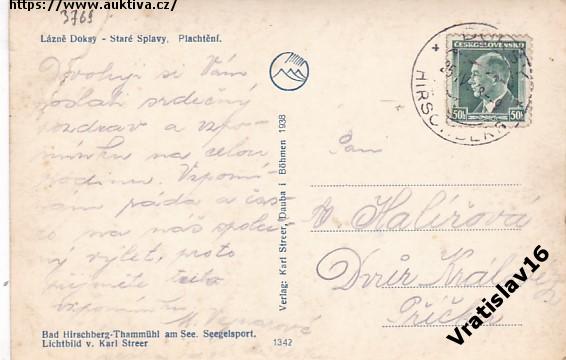 https://www.auktiva.cz/
3769
Lázně Doksy - Staré Splavy. Plachtění.
Dovoluji si Vám
poslati srdečný
pozdrav a vzpo-
mínku na celou
rodinu. Vzpomí-
nám ráda a čas-
to na náš společ-
ný výlet, proto
přijměte tuto
vzpomínku
M.
Bad Hirschberg-Thammühl am See. Seegelsport.
Lichtbild v. Karl Streer
1342
Verlag: Karl Streer, Dauba i Böhmen 1938
ČESKOSLOVENSKO
50h 50h
HIRSCHBERG
Paní
Halířová
Dvůr Králové
Příčná
Vratislav16